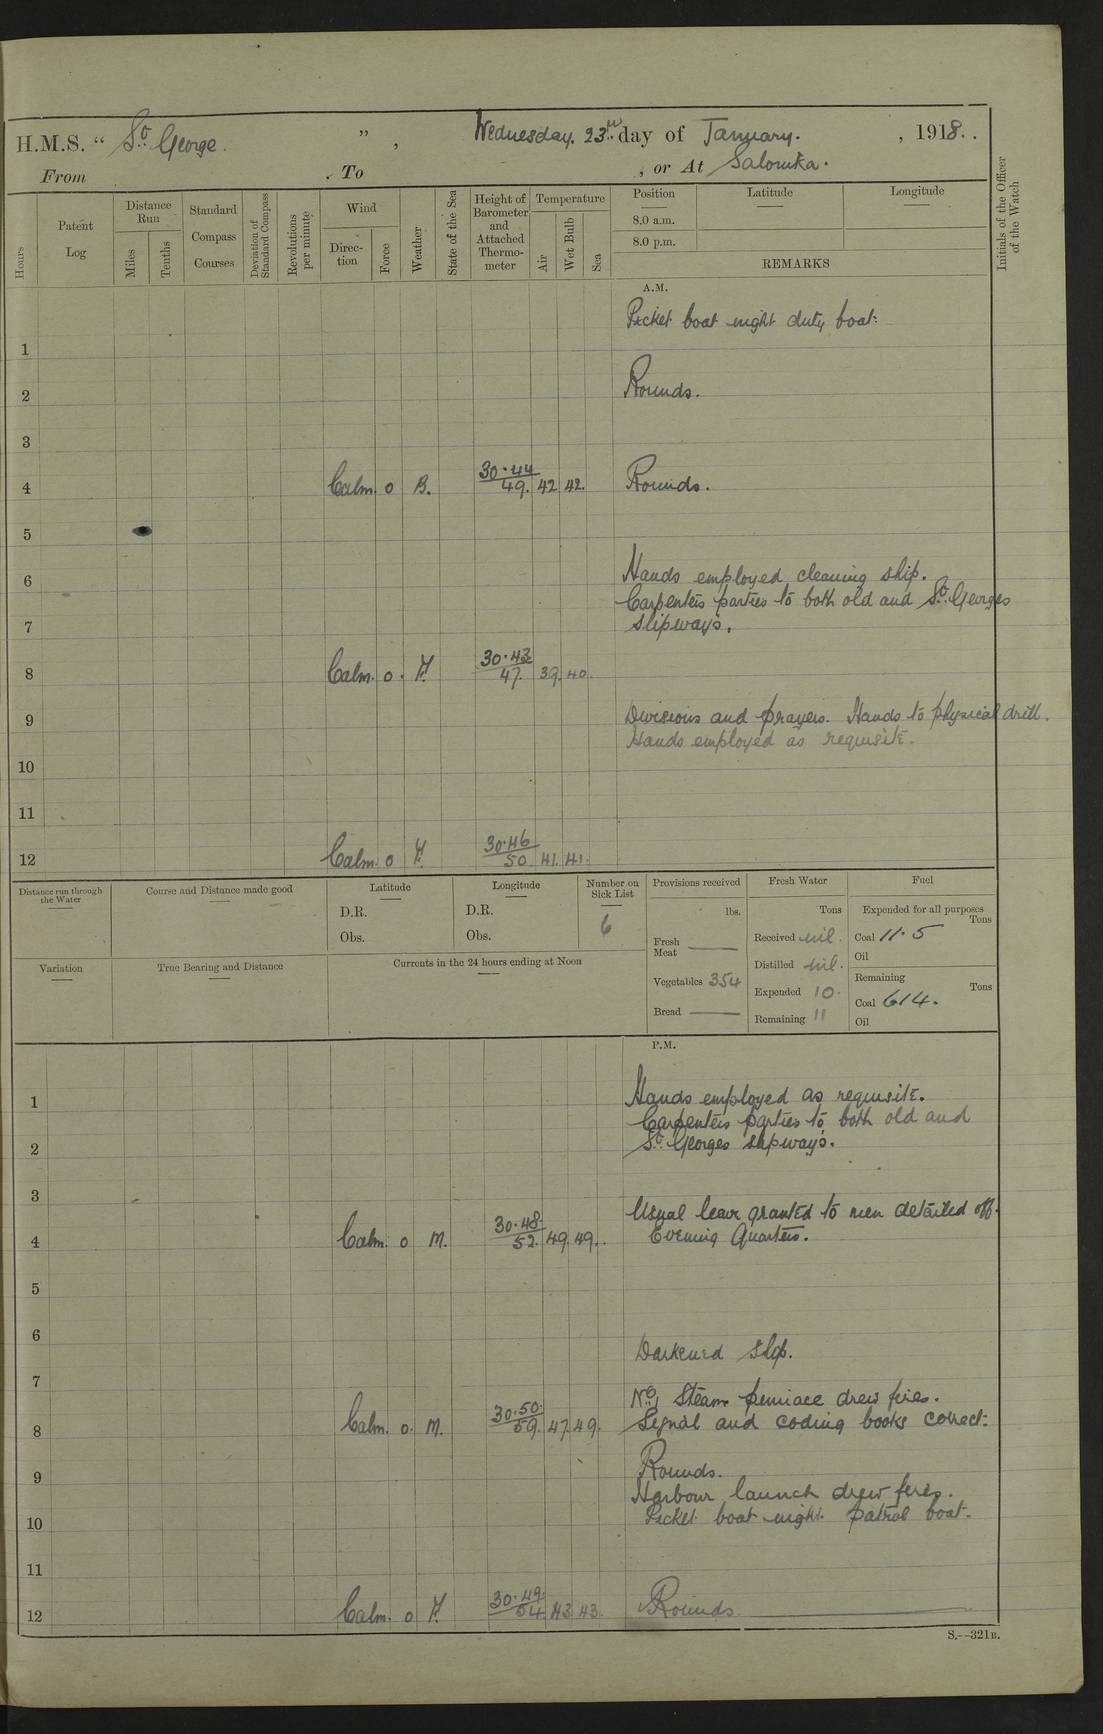 H.M.S. “ St. George. ” , Wednesday. 23rd day of January. , 1918..
From , To , or At Salonika.
Hours
Patent Log
Distance Run
Miles
Tenths
Standard Compass Courses
Deviation of Standard Compass
Revolutions per minute
Wind
Direc-tion
Force
Weather
State of the Sea
Height of Barometer and Attached Thermo-meter
Temperature
Air
Wet Bulb
Sea
Position
Latitude
Longitude
8.0 a.m.
8.0 p.m.
REMARKS
Initials of the Officer of the Watch
A.M.
Picket boat night duty boat.
1
2 Rounds.
3
30.44
4 Calm. 0 B. 49. 42 42. Rounds.
5
6 Hands employed cleaning ship.
Carpenters parties to both old and St. Georges
7 slipways.
30.43
8 Calm. 0. F. 47. 39. 40.
9 Divisions and prayers. Hands to physical drill.
Hands employed as requisite.
10
11
30.46
12 Calm. 0 F. 50. 41. 41.
Distance run through the Water
Course and Distance made good
Latitude
D.R.
Obs.
Longitude
D.R.
Obs.
Number on Sick List
6
Provisions received
lbs.
Fresh Meat
Vegetables 354
Bread
Fresh Water
Tons
Received nil.
Distilled nil.
Expended 10.
Remaining 11
Fuel
Expended for all purposes
Tons
Coal 11.5
Oil
Remaining
Tons
Coal 614.
Oil
Variation
True Bearing and Distance
Currents in the 24 hours ending at Noon
P.M.
1 Hands employed as requisite.
Carpenters parties to both old and
2 St. Georges slipways.
3
Usual leave granted to men detailed off.
30.48.
4 Calm. 0 M. 52. 49. 49. Evening Quarters.
5
6
Darkened ship.
7
No. 1 Steam pinnace drew fires.
30.50.
8 Calm. 0. M. 59. 47. 49. Signal and coding books correct.
9 Rounds.
Harbour launch drew fires.
10 Picket boat night patrol boat.
11
30.49.
12 Calm. 0 F. 54. 43. 43. Rounds
S.--321B.